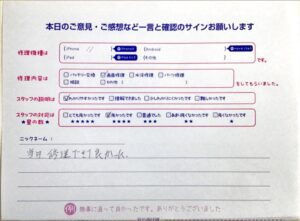 本日のご意見・ご感想など一言と確認のサインお願いします
修理機種は
iPhone 11
Android
iPad
その他
です。
修理内容は
バッテリー交換 画面修理 水没修理 パーツ修理
相談 その他
をしてもらいました。
スタッフの説明は
わかりやすかったです 理解できました 少しわかりにくかったです 難しかったです
スタッフの対応は
★星の数★
とても良かったです 良かったです 普通でした 良くなかったです
★★★★★ ★★★★ ★★★ ★★ ★
ニックネーム：
当日修理できて良かった。
無事に直って良かったです。ありがとうございました